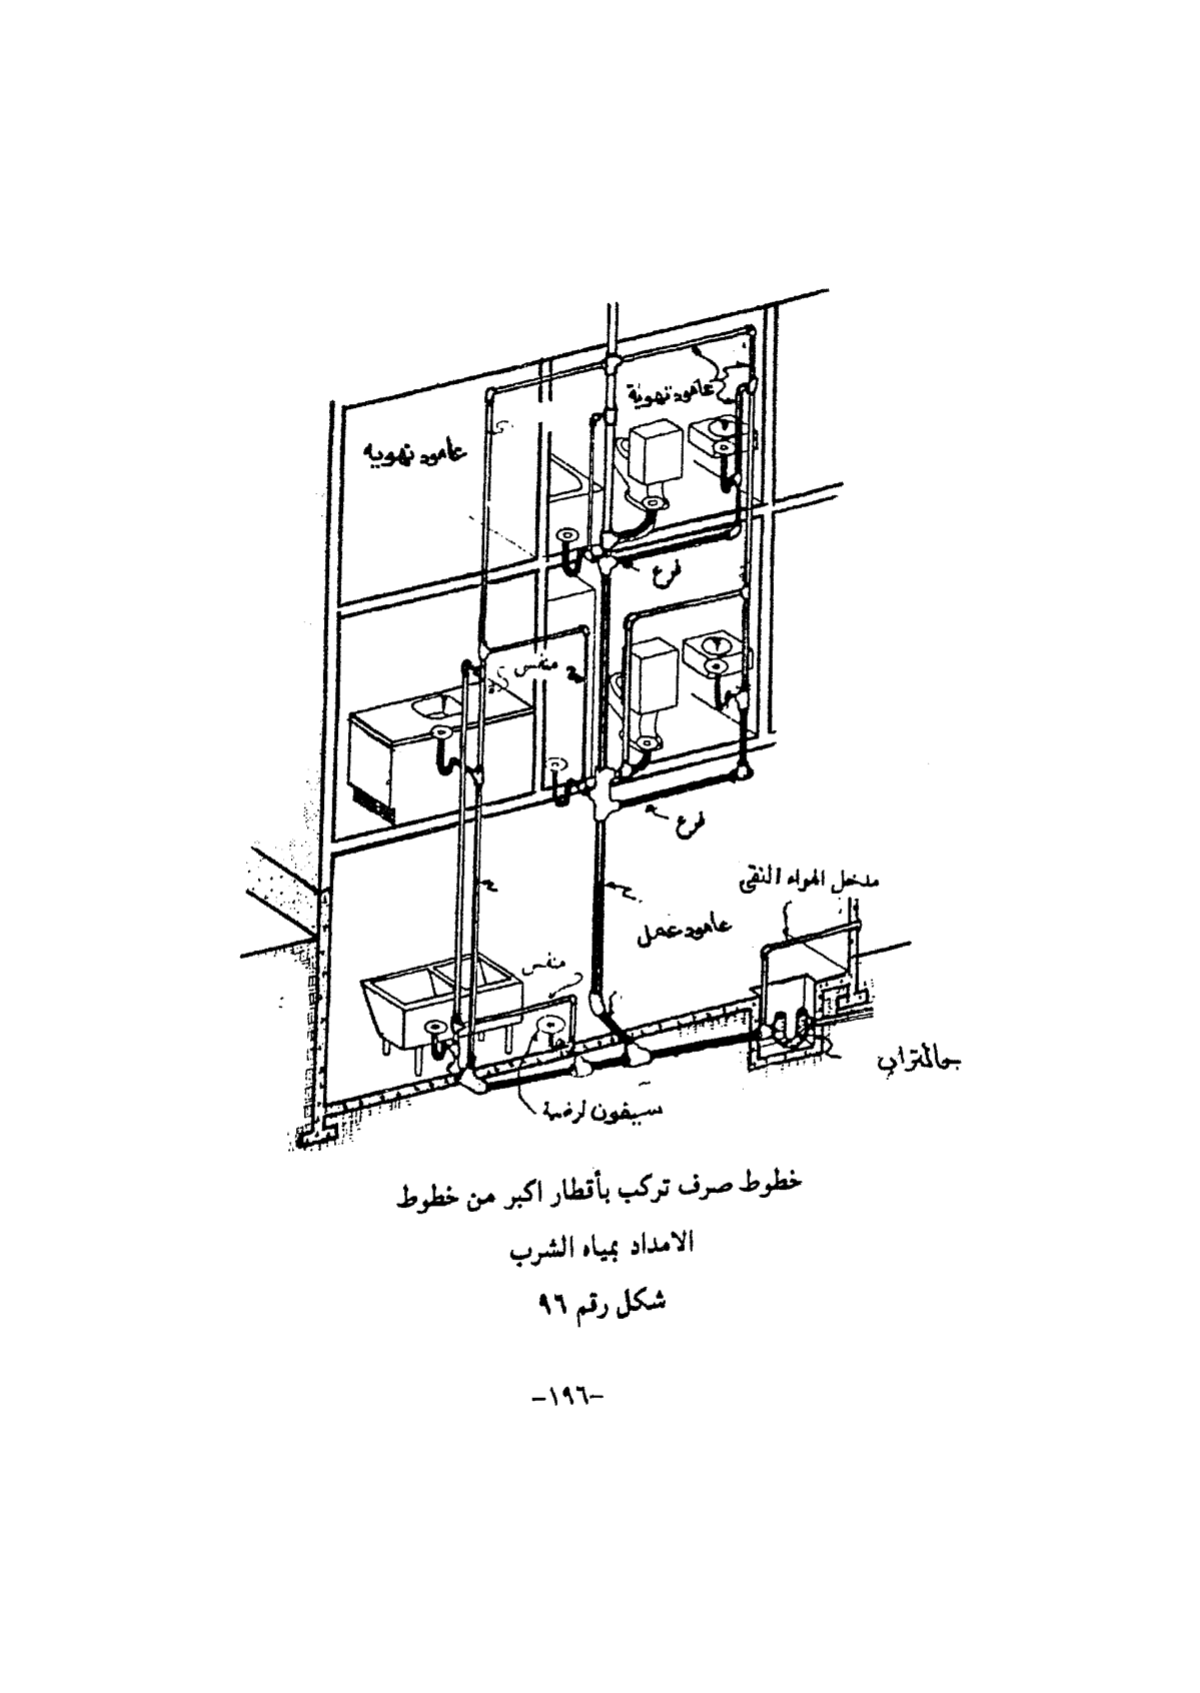 عامود تهوية
عامود تهويه
فرع
منفس
فرع
مدخل الهواء النقى
عامود عمل
منفس
سيفون ارضية
خطوط صرف تركب بأقطار اكبر من خطوط
الامداد بمياه الشرب
شكل رقم ٩٦
-١٩٦-